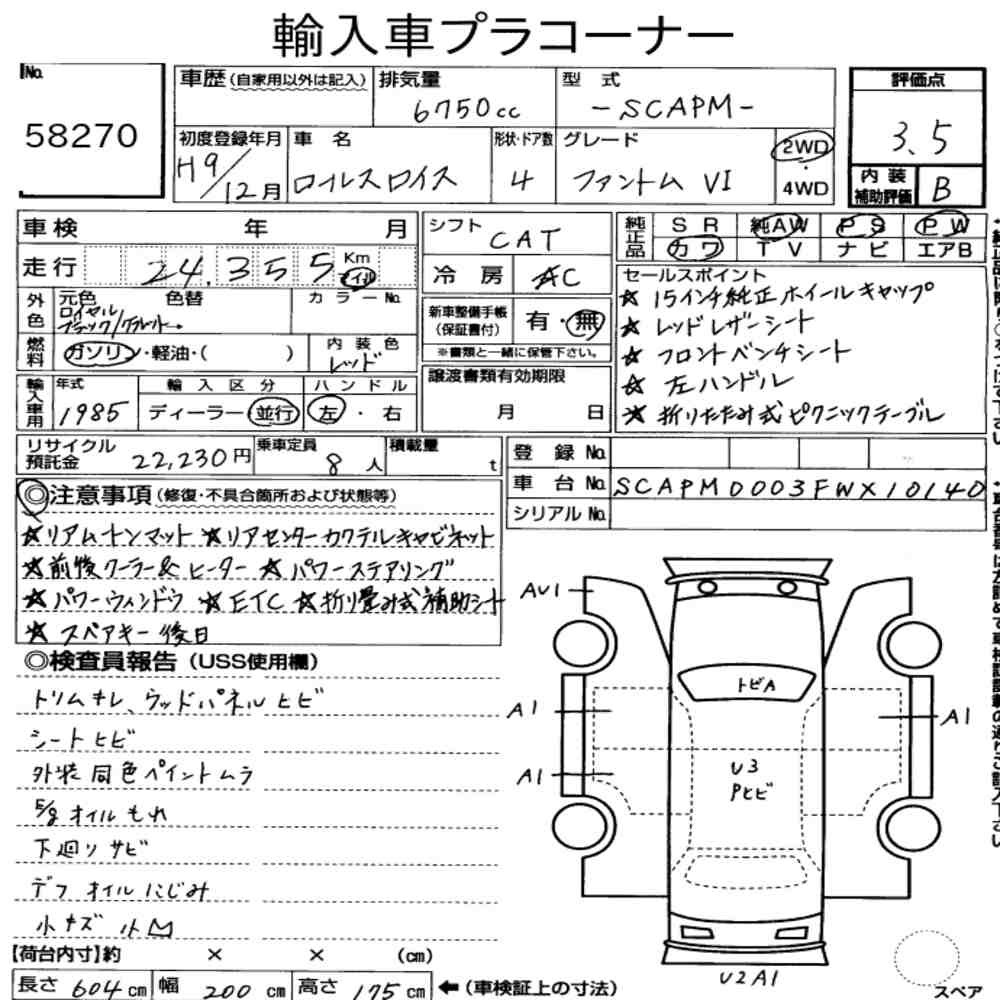 輸入車プラコーナー
No.
58270
車歴(自家用以外は記入) 排気量 型式
6750cc -SCAPM-
評価点
3.5
内装補助評価 B
初度登録年月 車名 形状・ドア数 グレード
H9/12月 ロールスロイス 4 ファントム VI
2WD
・
4WD
車検 年 月
走行 24,355 Km マイル
外色 元色 色替 カラーNo.
ロイヤル
ブラック/クラレット
燃料 ガソリン・軽油・( ) 内装色 レッド
輸入車用 年式 輸入区分 ハンドル
1985 ディーラー 並行 左・右
シフト CAT
冷房 AC
新車整備手帳(保証書付) 有・無
※書類と一緒に保管下さい。
譲渡書類有効期限
月 日
純正品 SR 純AW PS PW
カワ TV ナビ エアB
セールスポイント
☆ 15インチ純正ホイールキャップ
☆ レッドレザーシート
☆ フロントベンチシート
☆ 左ハンドル
☆ 折りたたみ式ピクニックテーブル
リサイクル預託金 22,230円 乗車定員 8人 積載量 t
登録No.
車台No. SCAPM0003FWX10140
シリアルNo.
◎注意事項(修復・不具合箇所および状態等)
☆リアムートンマット ☆リアセンターカクテルキャビネット
☆前後クーラー& ヒーター ☆パワーステアリング
☆パワーウィンドウ ☆ETC ☆折り畳み式補助シート
☆ スペアキー後日
◎検査員報告(USS使用欄)
トリムキレ、ウッドパネルヒビ
シートヒビ
外装同色ペイントムラ
E/g オイルもれ
下廻りサビ
デフ オイルにじみ
小キズ 小凹
AU1
A1
A1
A1
トビA
U3
Pヒビ
U2A1
スペア
【荷台内寸】約 × × (cm)
長さ 604cm 幅 200cm 高さ 175cm ←(車検証上の寸法)